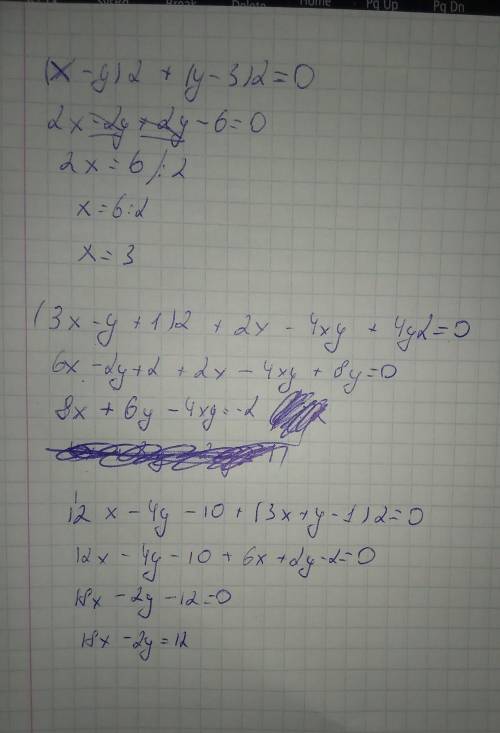 Break
Delete
Home
Pq Up
Pq Dn
(x - y)2 + (y - 3)2 = 0
2x - 2y + 2y - 6 = 0
2x = 6 /:2
x = 6:2
x = 3
(3x - y + 1)2 + 2x - 4xy + 4y2 = 0
6x - 2y + 2 + 2x - 4xy + 8y = 0
8x + 6y - 4xy = -2
12x - 4y - 10 + (3x + y - 1)2 = 0
12x - 4y - 10 + 6x + 2y - 2 = 0
18x - 2y - 12 = 0
18x - 2y = 12